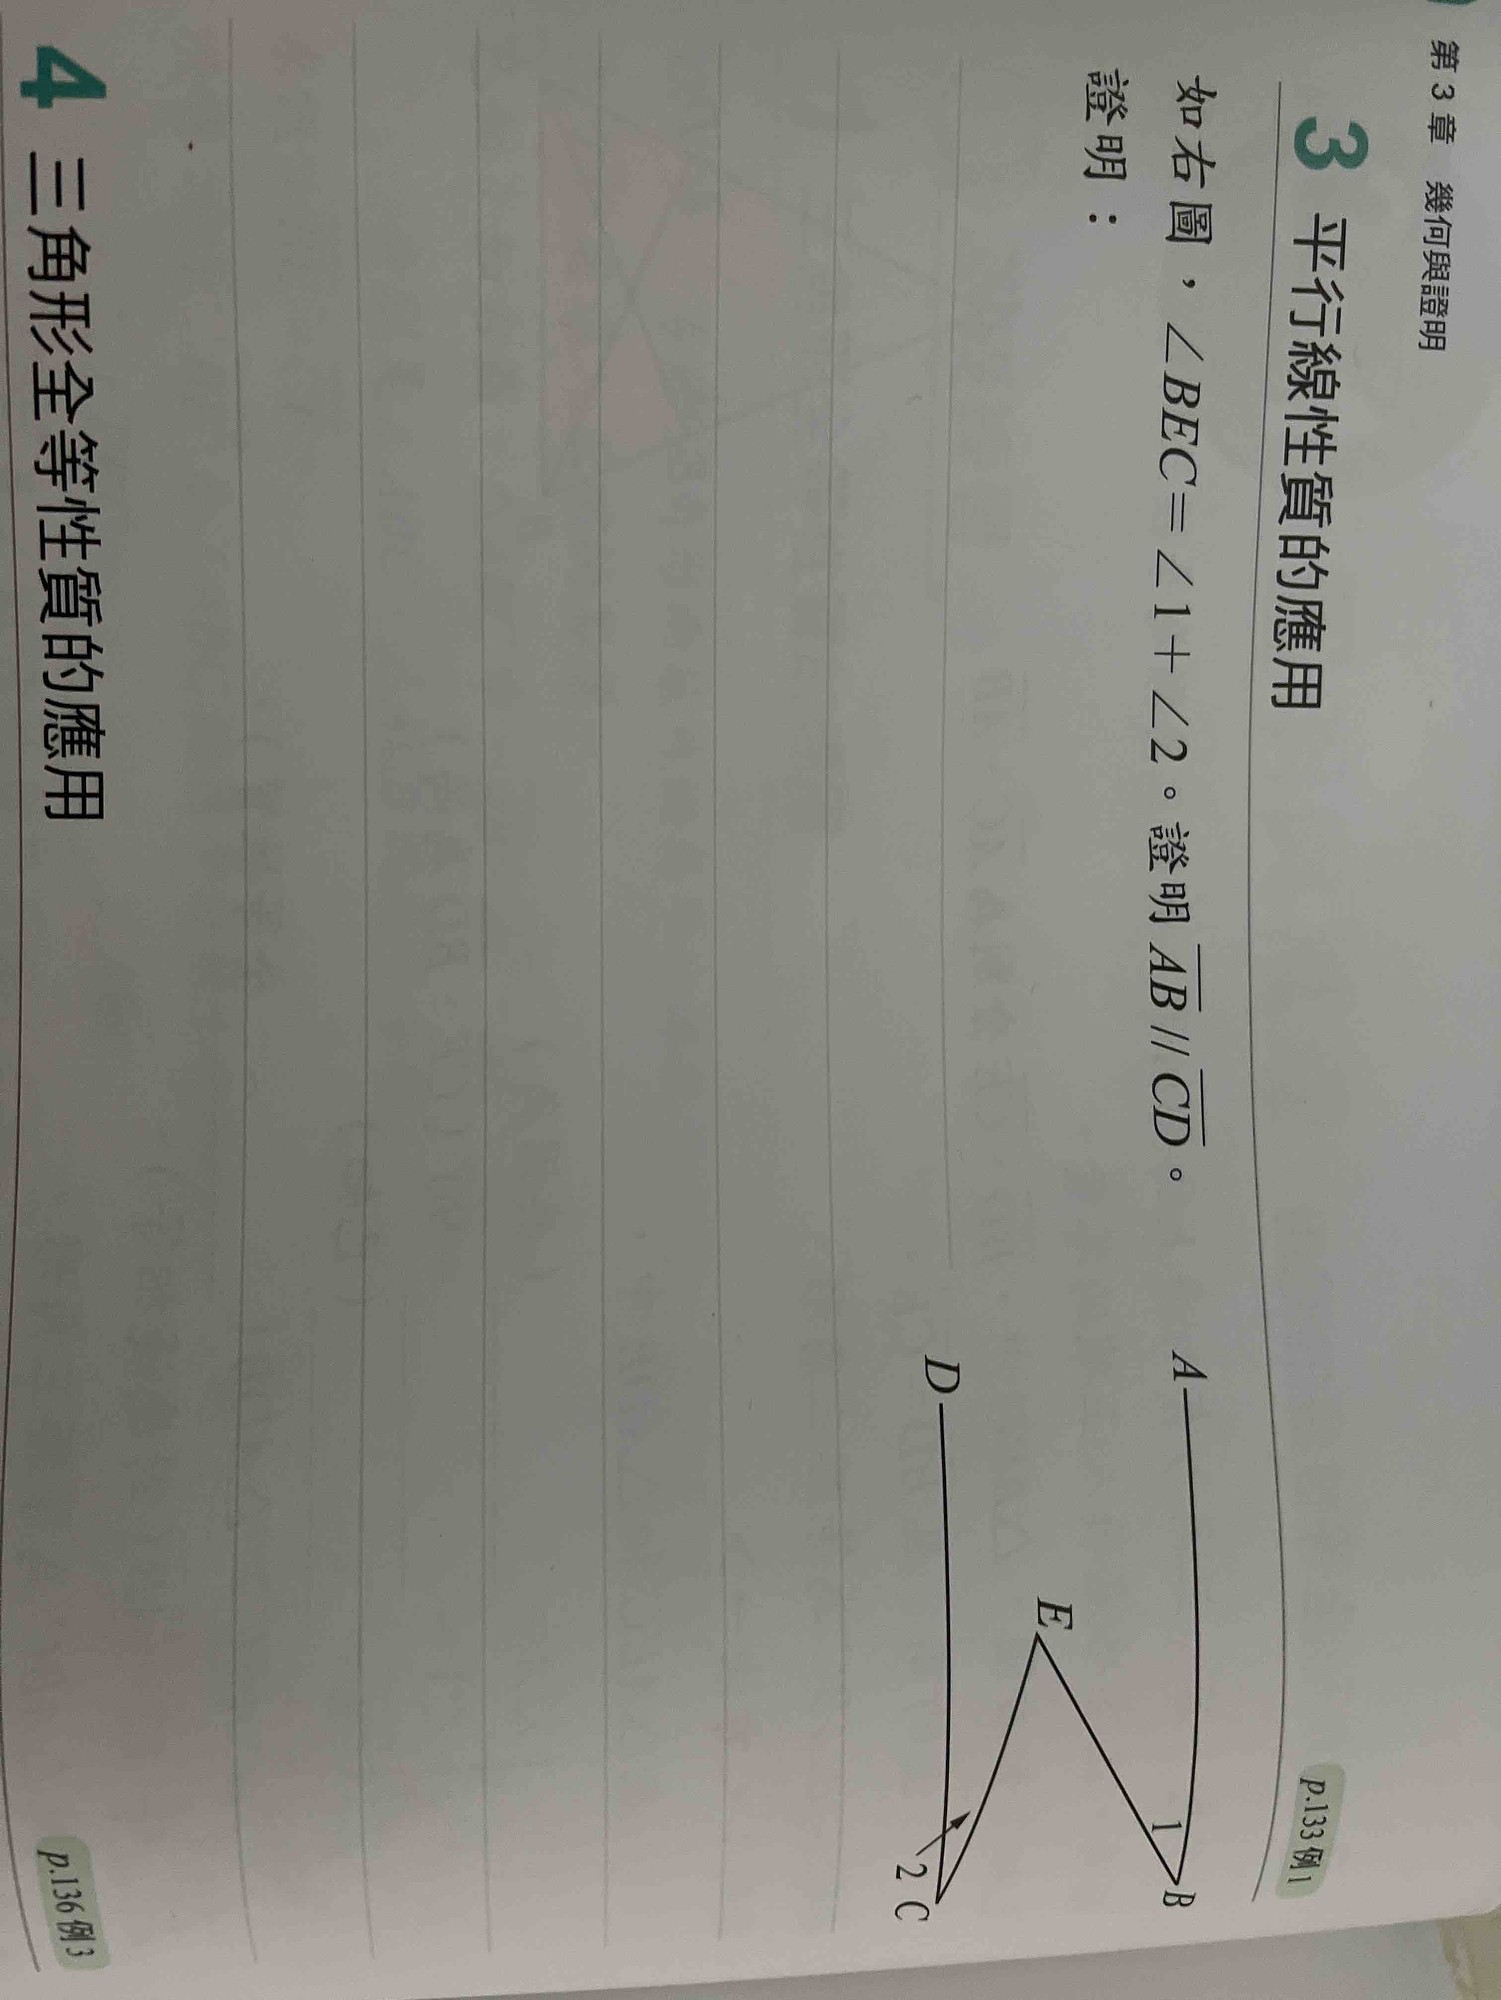 第3章 幾何與證明
3 平行線性質的應用
p.133 例1
如右圖，∠BEC＝∠1＋∠2。證明 AB // CD。
證明：
A
1
B
E
D
2
C
4 三角形全等性質的應用
p.136 例3